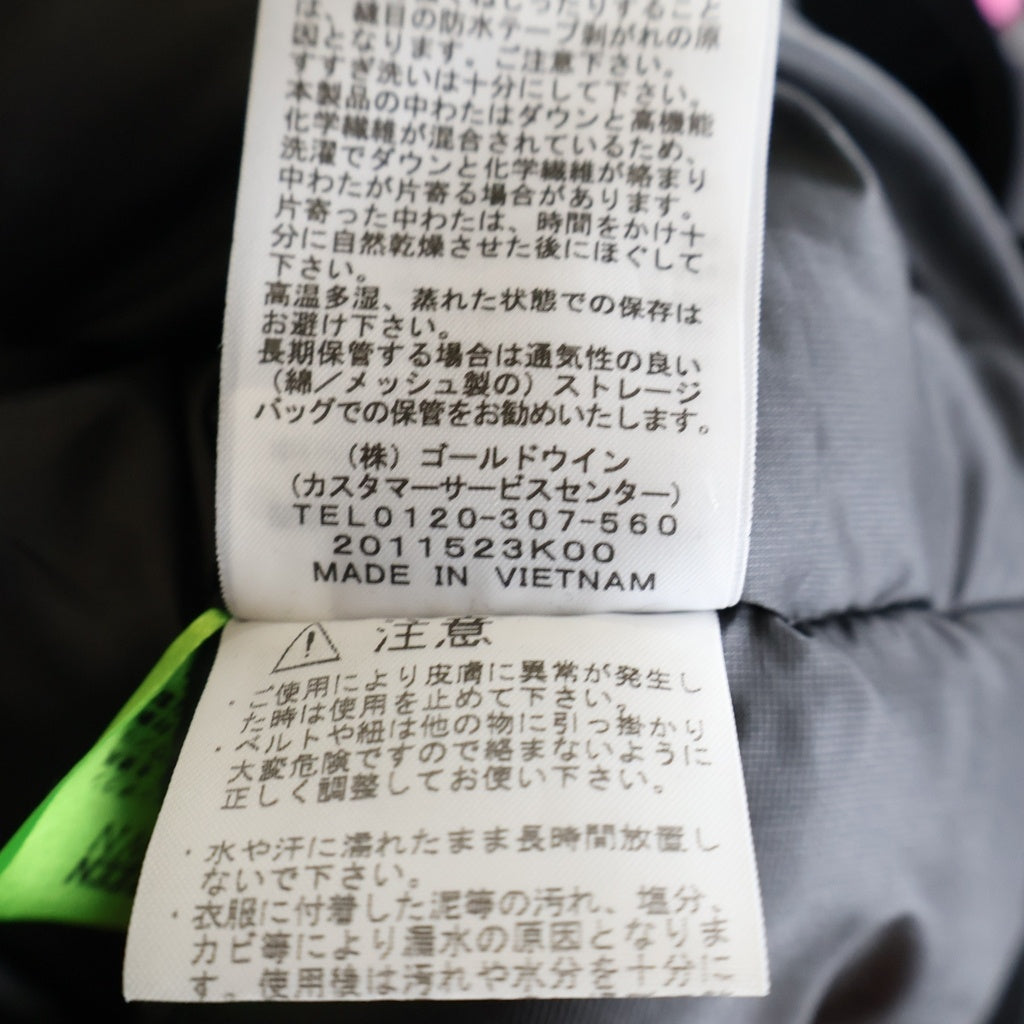 ねじったりすること
は、縫目の防水テープ剥がれの原
因となります。ご注意下さい。
すすぎ洗いは十分にして下さい。
本製品の中わたはダウンと高機能
化学繊維が混合されているため、
洗濯でダウンと化学繊維が絡まり
中わたが片寄る場合があります。
片寄った中わたは、時間をかけ十
分に自然乾燥させた後にほぐして
下さい。
高温多湿、蒸れた状態での保存は
お避け下さい。
長期保管する場合は通気性の良い
(綿/メッシュ製の)ストレージ
バッグでの保管をお勧めいたします。
(株)ゴールドウイン
(カスタマーサービスセンター)
TEL0120-307-560
2011523K00
MADE IN VIETNAM
注意
・ご使用により皮膚に異常が発生し
た時は使用を止めて下さい。
・ベルトや紐は他の物に引っ掛かり
大変危険ですので絡まないように
正しく調整してお使い下さい。
・水や汗に濡れたまま長時間放置し
ないで下さい。
・衣服に付着した泥等の汚れ、塩分、
カビ等により漏水の原因となりま
す。使用後は汚れや水分を十分に